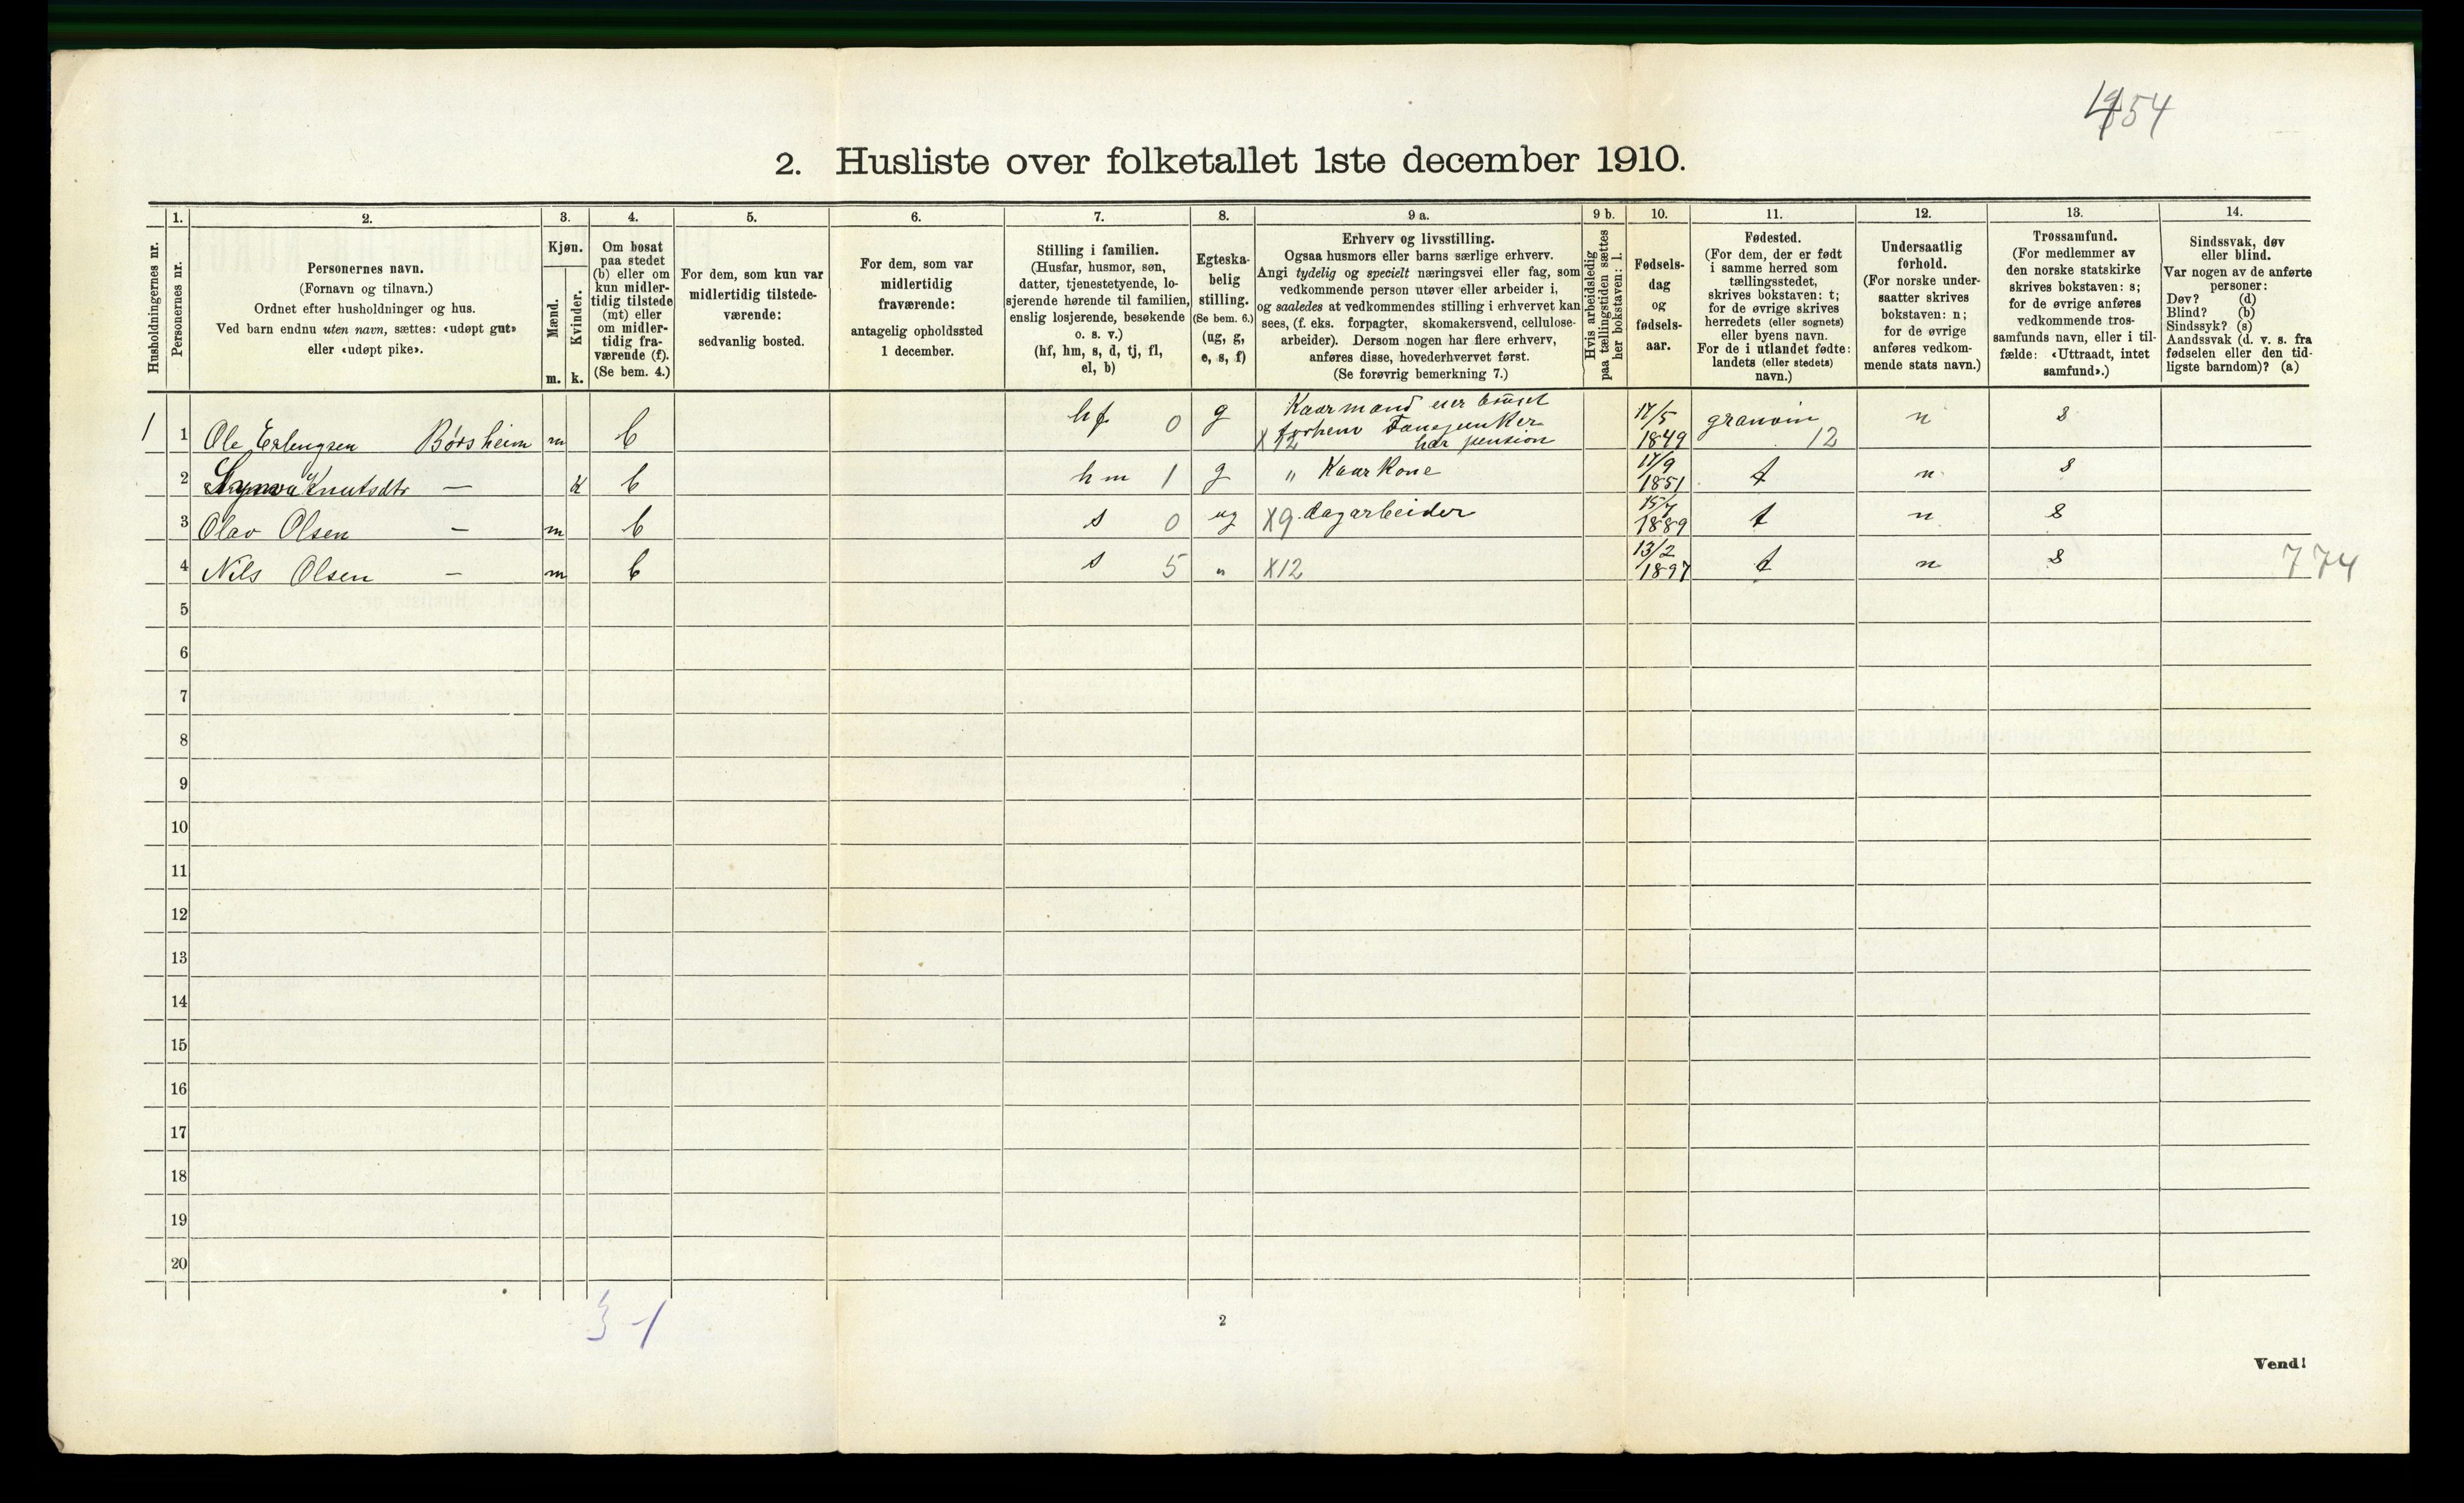 454
2. Husliste over folketallet 1ste december 1910.
Husholdningernes nr.
1.
Personernes nr.
2.
Personernes navn.
(Fornavn og tilnavn.)
Ordnet efter husholdninger og hus.
Ved barn endnu uten navn, sættes: «udøpt gut»
eller «udøpt pike».
3.
Kjøn.
Mænd.
Kvinder.
m. k.
4.
Om bosat
paa stedet
(b) eller om
kun midler-
tidig tilstede
(mt) eller
om midler-
tidig fra-
værende (f).
(Se bem. 4.)
5.
For dem, som kun var
midlertidig tilstede-
værende:
sedvanlig bosted.
6.
For dem, som var
midlertidig
fraværende:
antagelig opholdssted
1 december.
7.
Stilling i familien.
(Husfar, husmor, søn,
datter, tjenestetyende, lo-
sjerende hørende til familien,
enslig losjerende, besøkende
o. s. v.)
(hf, hm, s, d, tj, fl,
el, b)
8.
Egteska-
belig
stilling.
(Se bem. 6.)
(ug, g,
e, s, f)
9 a.
Erhverv og livsstilling.
Ogsaa husmors eller barns særlige erhverv.
Angi tydelig og specielt næringsvei eller fag, som
vedkommende person utøver eller arbeider i,
og saaledes at vedkommendes stilling i erhvervet kan
sees, (f. eks. forpagter, skomakersvend, cellulose-
arbeider). Dersom nogen har flere erhverv,
anføres disse, hovederhvervet først.
(Se forøvrig bemerkning 7.)
9 b.
Hvis arbeidsledig
paa tællingstiden sættes
her bokstaven: l.
10.
Fødsels-
dag
og
fødsels-
aar.
11.
Fødested.
(For dem, der er født
i samme herred som
tællingsstedet,
skrives bokstaven: t;
for de øvrige skrives
herredets (eller sognets)
eller byens navn.
For de i utlandet fødte:
landets (eller stedets)
navn.)
12.
Undersaatlig
forhold.
(For norske under-
saatter skrives
bokstaven: n;
for de øvrige
anføres vedkom-
mende stats navn.)
13.
Trossamfund.
(For medlemmer av
den norske statskirke
skrives bokstaven: s;
for de øvrige anføres
vedkommende tros-
samfunds navn, eller i til-
fælde: «Uttraadt, intet
samfund».)
14.
Sindssvak, døv
eller blind.
Var nogen av de anførte
personer:
Døv? (d)
Blind? (b)
Sindssyk? (s)
Aandssvak (d. v. s. fra
fødselen eller den tid-
ligste barndom)? (a)
1 1 Ole Erlengsen Børsheim m b hf 0 g Kaarmand eier bruset forhenv Fanejunker X12 har pension 17/5 1849 granvin 12 n s
2 Synva Knutsdtr — k b hm 1 g " Kaarkone 17/9 1851 t n s
3 Olav Olsen — m b s 0 ug X9 dagarbeider 15/7 1889 t n s
4 Nils Olsen — m b s 5 " X12 13/2 1897 t n s 774
5
6
7
8
9
10
11
12
13
14
15
16
17
18
19
20
3 - 1
2
Vend!